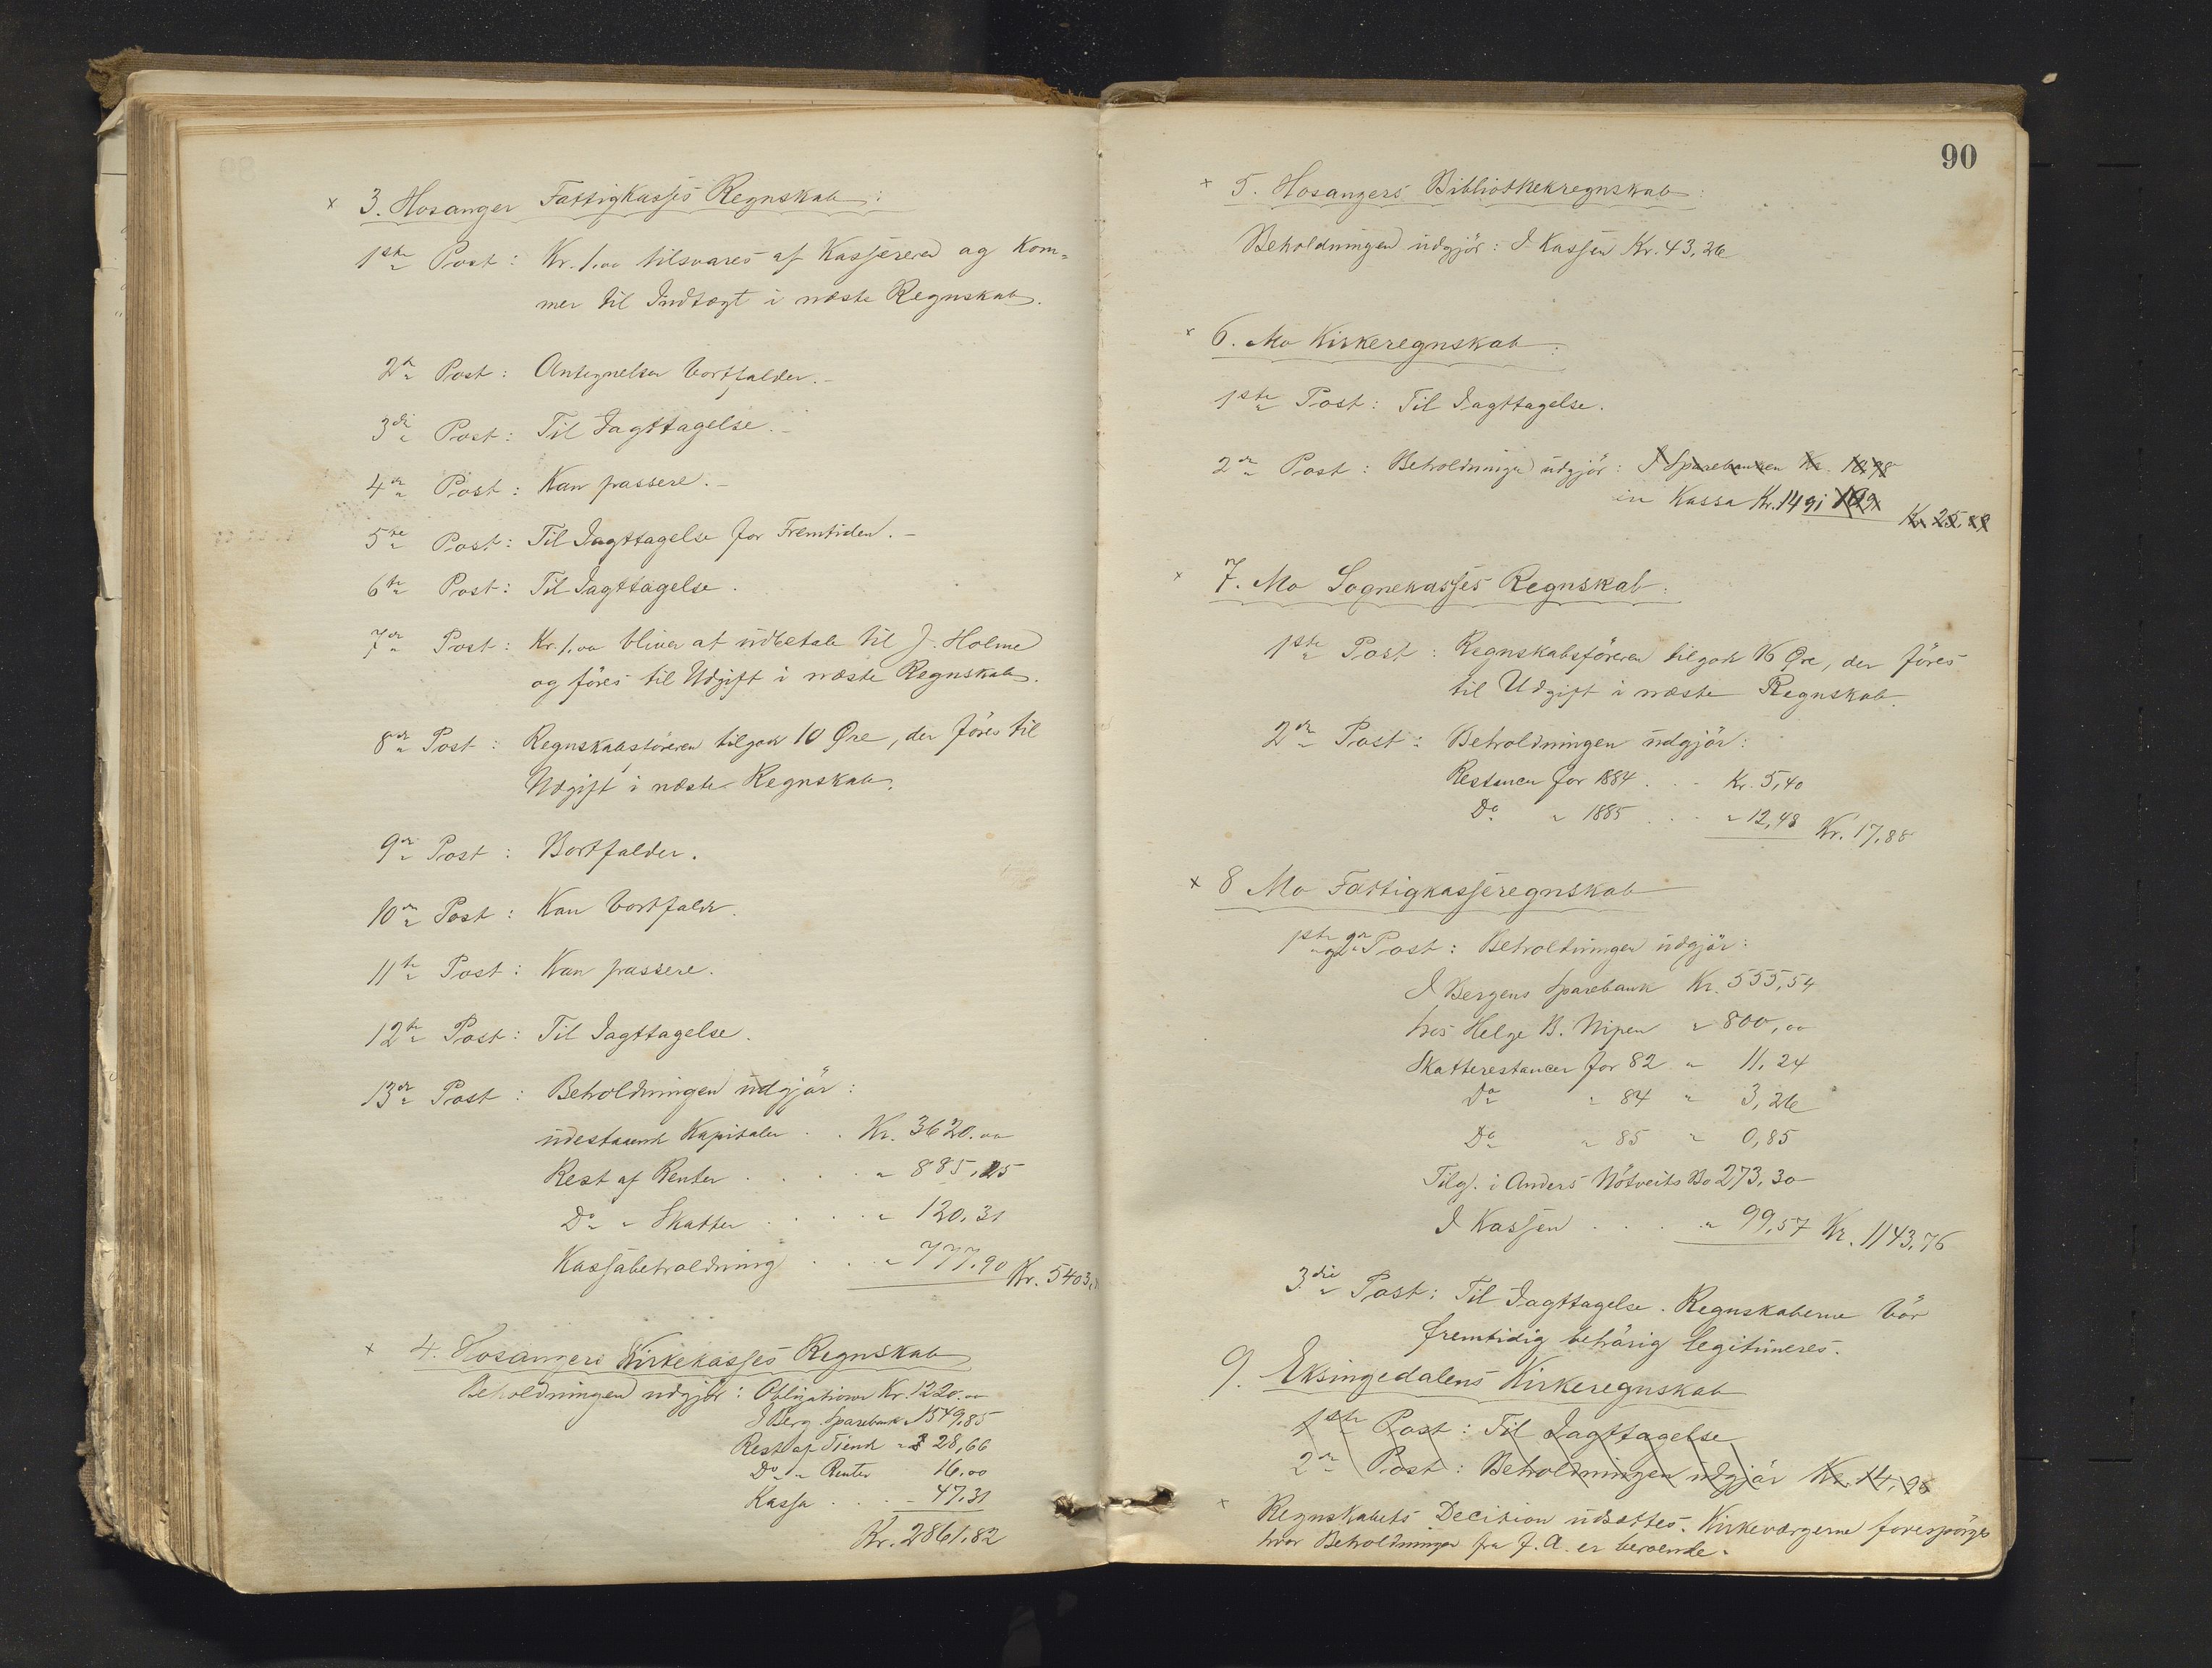 × 3. Hosanger Fattigkasses Regnskab:
1ste Post: Kr. 1.00 tilsvares af Kassereren og kom-
mer til Indtægt i næste Regnskab.
2de Post: Antegnelsen bortfalder.-
3die Post: Til Iagttagelse.-
4de Post: Kan passere.-
5te Post: Til Iagttagelse for Fremtiden.-
6te Post: Til Iagttagelse.
7de Post: Kr. 1.00 bliver at udbetale til J. Holme
og föres til Udgift i næste Regnskab.
8de Post: Regnskabsföreren tilgode 10 Øre, der föres til
Udgift i næste Regnskab.
9de Post: Bortfalder.
10de Post: Kan bortfalde.
11te Post: Kan passere.
12te Post: Til Iagttagelse.
13de Post: Beholdningen udgjör:
udestaaende Kapitaler . . Kr. 3620.00
Rest af Renter . . . . " 885,25
Do " Skatter . . . . " 120.31
Kassabeholdning . . . " 777.90 Kr. 5403,
× 4. Hosangers Kirkekasses Regnskab
Beholdningen udgjör: Obligationer Kr. 1220.00
I Berg. Sparebank " 1549,85
Rest af Tiende " 28,66
Do " Renter 16.00
Kassa . . . - 47.31
Kr. 2861.82
90
× 5. Hosangers Bibliothekregnskab:
Beholdningen udgjör: I Kassen Kr. 43,26
× 6. Mo Kirkeregnskab:
1ste Post: Til Iagttagelse.
2de Post: Beholdningen udgjör: I Sparebanken Kr. 10,98
in Kassa Kr. 14 91
Kr. 25.
× 7. Mo Sognekasses Regnskab:
1ste Post: Regnskabsföreren tilgode 16 Øre, der föres
til Udgift i næste Regnskab.
2de Post: Beholdningen udgjör:
Restancer for 1884 . . . Kr. 5,40
Do " 1885 . . . " 12,48 Kr. 17,88
× 8 Mo Fattigkasseregnskab
1ste og 2de Post: Beholdningen udgjör:
I Bergens Sparebank Kr. 555,54
hos Helge B. Nipen " 800,00
Skatterestancer for 82 " 11,24
Do " 84 " 3,26
Do " 85 " 0,85
Tilg. i Anders Nötveits Bo 273,30
I Kassen . . . . " 99,57 Kr. 1143,76
3die Post: Til Iagttagelse. Regnskaberne bör
fremtidig behörig legitimeres.
9. Eksingedalens Kirkeregnskab
1ste Post: Til Iagttagelse
2de Post: Beholdningen udgjör Kr. 14,
× Regnskabets Decision udsættes. Kirkeværgerne forespörges
hvor Beholdningen fra f. A. er beroende.